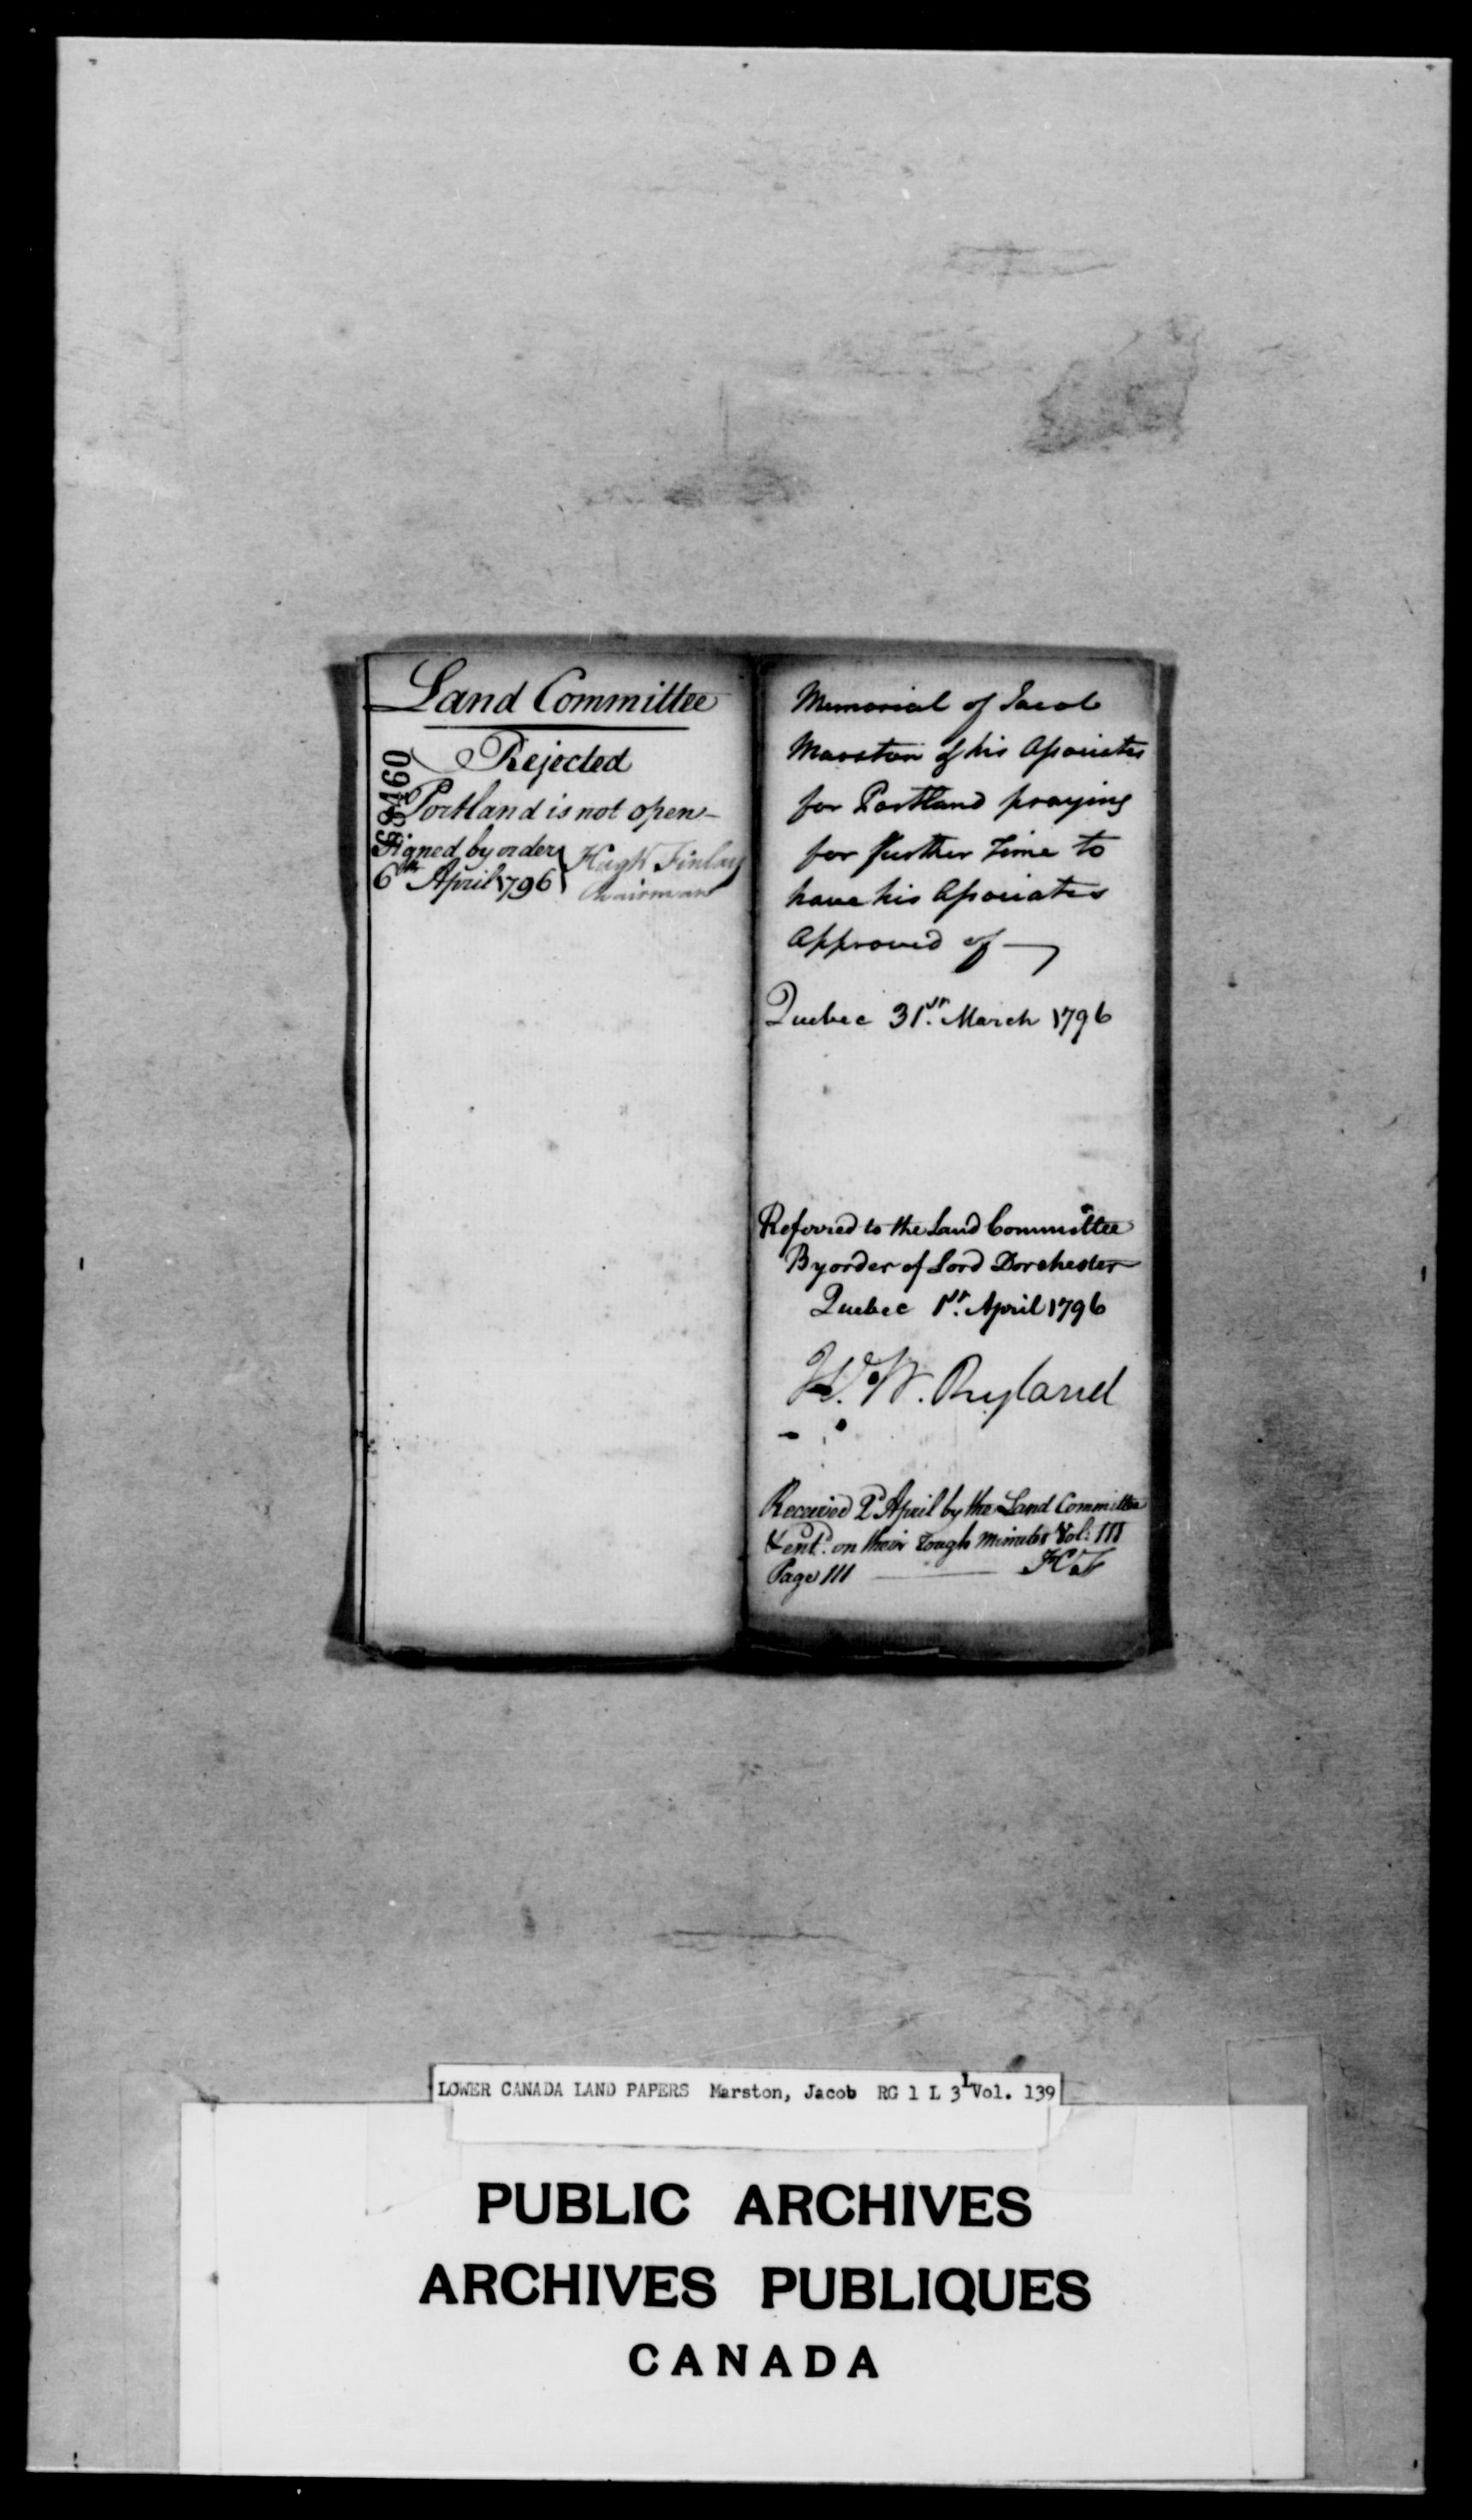 Land Committee
Rejected
68460
Portland is not open
Signed by order
6th April 1796
Hugh Finlay
Chairman
Memorial of Jacob
Marston & his Associates
for Portland praying
for further Time to
have his Associates
Approved of
Quebec 31st. March 1796
Referred to the Land Committee
By order of Lord Dorchester
Quebec 1st. April 1796
H. W. Ryland
Received 2d April by the Land Committee
& entd. on their rough minutes Vol: III
Page 111
LOWER CANADA LAND PAPERS Marston, Jacob RG 1 L 3L Vol. 139
PUBLIC ARCHIVES
ARCHIVES PUBLIQUES
CANADA